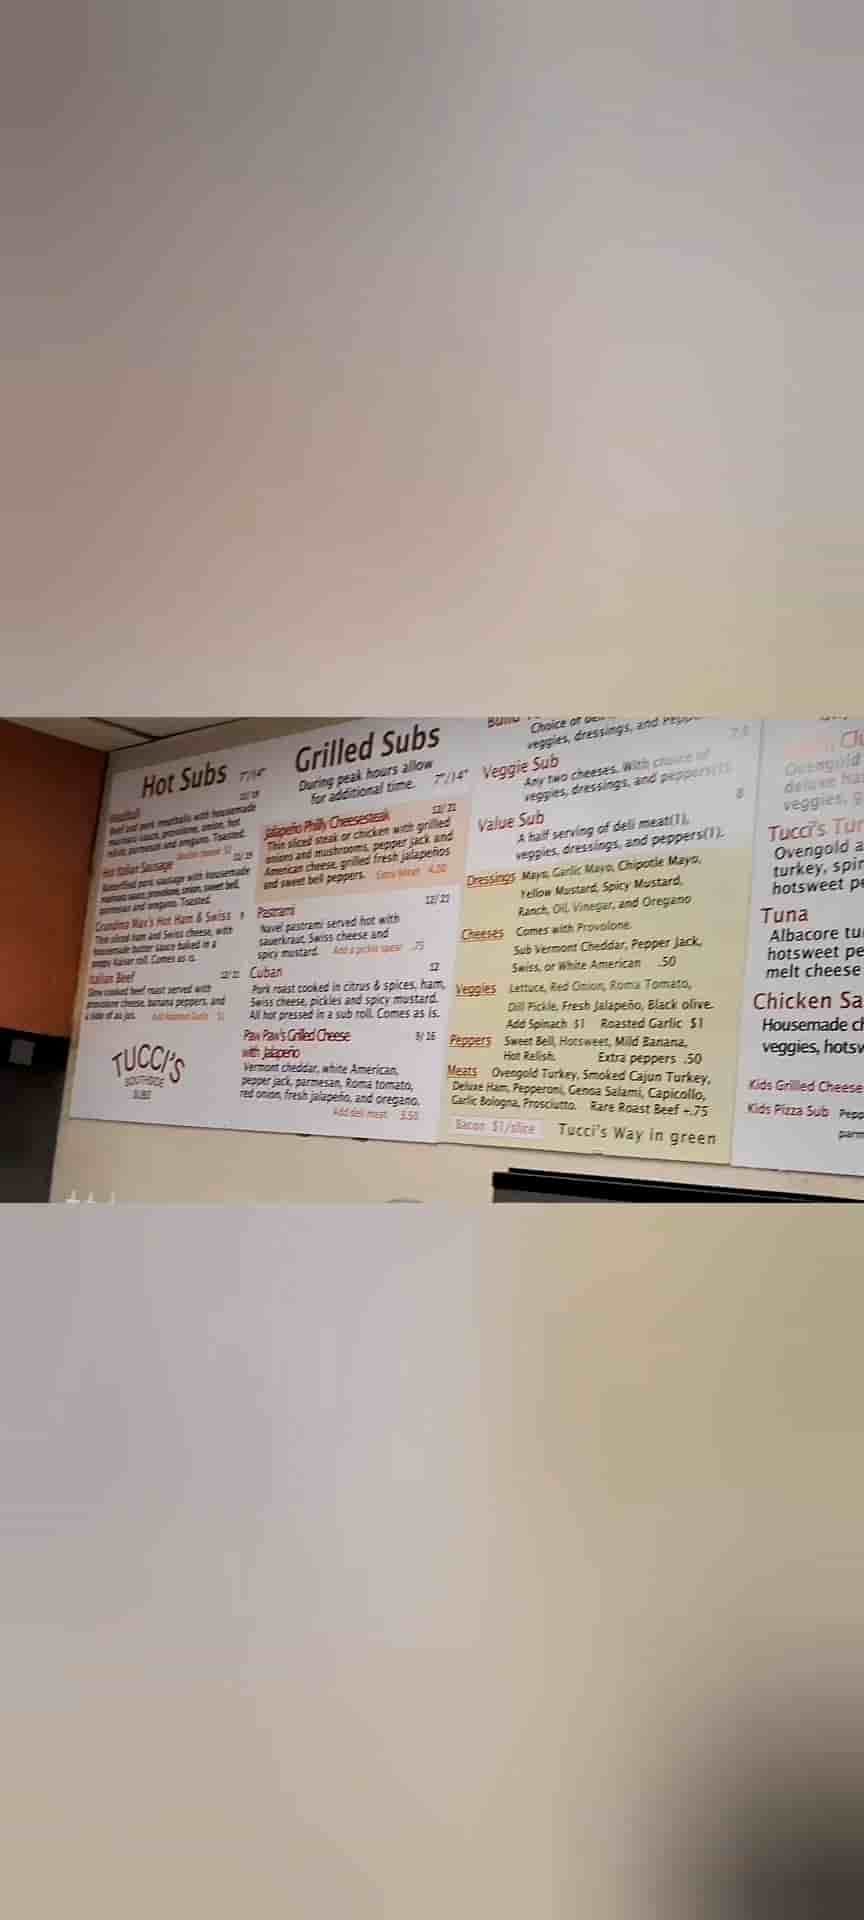 Hot Subs 7"/14"
Meatball 12/19
Beef and pork meatballs with housemade
marinara sauce, provolone, onion, hot
relish, parmesan and oregano. Toasted.
Hot Italian Sausage
Butterflied pork sausage with housemade
marinara sauce, provolone, onion, sweet bell,
parmesan and oregano. Toasted.
Grandma Max's Hot Ham & Swiss 9
Thin sliced ham and Swiss cheese, with
housemade butter sauce baked in a
poppy Kaiser roll. Comes as is.
Italian Beef 12/21
Slow cooked beef roast served with
provolone cheese, banana peppers, and
a side of au jus. Add Roasted Garlic $1
TUCCI'S
SOUTHSIDE
SUBS
Grilled Subs
During peak hours allow
for additional time. 7"/14"
Jalapeño Philly Cheesesteak 12/21
Thin sliced steak or chicken with grilled
onions and mushrooms, pepper jack and
American cheese, grilled fresh jalapeños
and sweet bell peppers. Extra Meat
Pastrami 12/21
Navel pastrami served hot with
sauerkraut, Swiss cheese and
spicy mustard. Add a pickle spear .75
Cuban 12
Pork roast cooked in citrus & spices, ham,
Swiss cheese, pickles and spicy mustard.
All hot pressed in a sub roll. Comes as is.
Paw Paw's Grilled Cheese 9/16
with Jalapeño
Vermont cheddar, white American,
pepper jack, parmesan, Roma tomato,
red onion, fresh jalapeño, and oregano.
Add deli meat 3.50
Build
Choice of deli
veggies, dressings, and
Veggie Sub
Any two cheeses. With choice of
veggies, dressings, and peppers(1).
Value Sub 8
A half serving of deli meat(1),
veggies, dressings, and peppers(1).
Dressings Mayo, Garlic Mayo, Chipotle Mayo,
Yellow Mustard, Spicy Mustard,
Ranch, Oil, Vinegar, and Oregano
Cheeses Comes with Provolone.
Sub Vermont Cheddar, Pepper Jack,
Swiss, or White American .50
Veggies Lettuce, Red Onion, Roma Tomato,
Dill Pickle, Fresh Jalapeño, Black olive.
Add Spinach $1 Roasted Garlic $1
Peppers Sweet Bell, Hotsweet, Mild Banana,
Hot Relish. Extra peppers .50
Meats Ovengold Turkey, Smoked Cajun Turkey,
Deluxe Ham, Pepperoni, Genoa Salami, Capicollo,
Garlic Bologna, Prosciutto. Rare Roast Beef +.75
Bacon $1/slice Tucci's Way in green
Clu
Ovengold
deluxe ha
veggies, g
Tucci's Tur
Ovengold a
turkey, spin
hotsweet pe
Tuna
Albacore tu
hotsweet pe
melt cheese
Chicken Sa
Housemade ch
veggies, hotsw
Kids Grilled Cheese
Kids Pizza Sub Pepp
parm